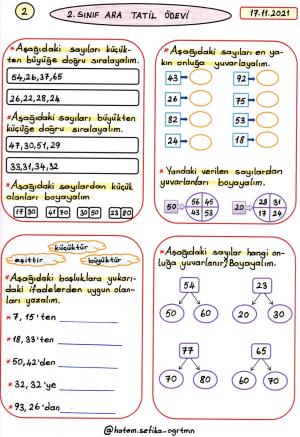 2
2. SINIF ARA TATİL ÖDEVİ
17.11.2021
* Aşağıdaki sayıları küçük-
ten büyüğe doğru sıralayalım.
54,26,37,65
26,22,28,24
* Aşağıdaki sayıları büyükten
küçüğe doğru sıralayalım.
47,30,51,29
33,31,34,32
* Aşağıdaki sayılardan küçük
olanları boyayalım
17 30 41 70 30 50 23 80
* Aşağıdaki sayıları en ya-
kın onluğa yuvarlayalım.
43 92
26 75
82 53
24 18
* Yandaki verilen sayılardan
yuvarlananları boyayalım.
50 56 45 43 53
20 28 31 17 24
küçüktür
eşittir büyüktür
* Aşağıdaki boşluklara yukarı-
daki ifadelerden uygun olan-
ları yazalım.
* 7, 15'ten
* 18, 33'ten
* 50, 42'den
* 32, 32'ye
* 93, 26'dan
* Aşağıdaki sayılar hangi on-
luğa yuvarlanır, Boyayalım.
54 23
50 60 20 30
77 65
70 80 60 70
@hatem.sefika-ogrtmn